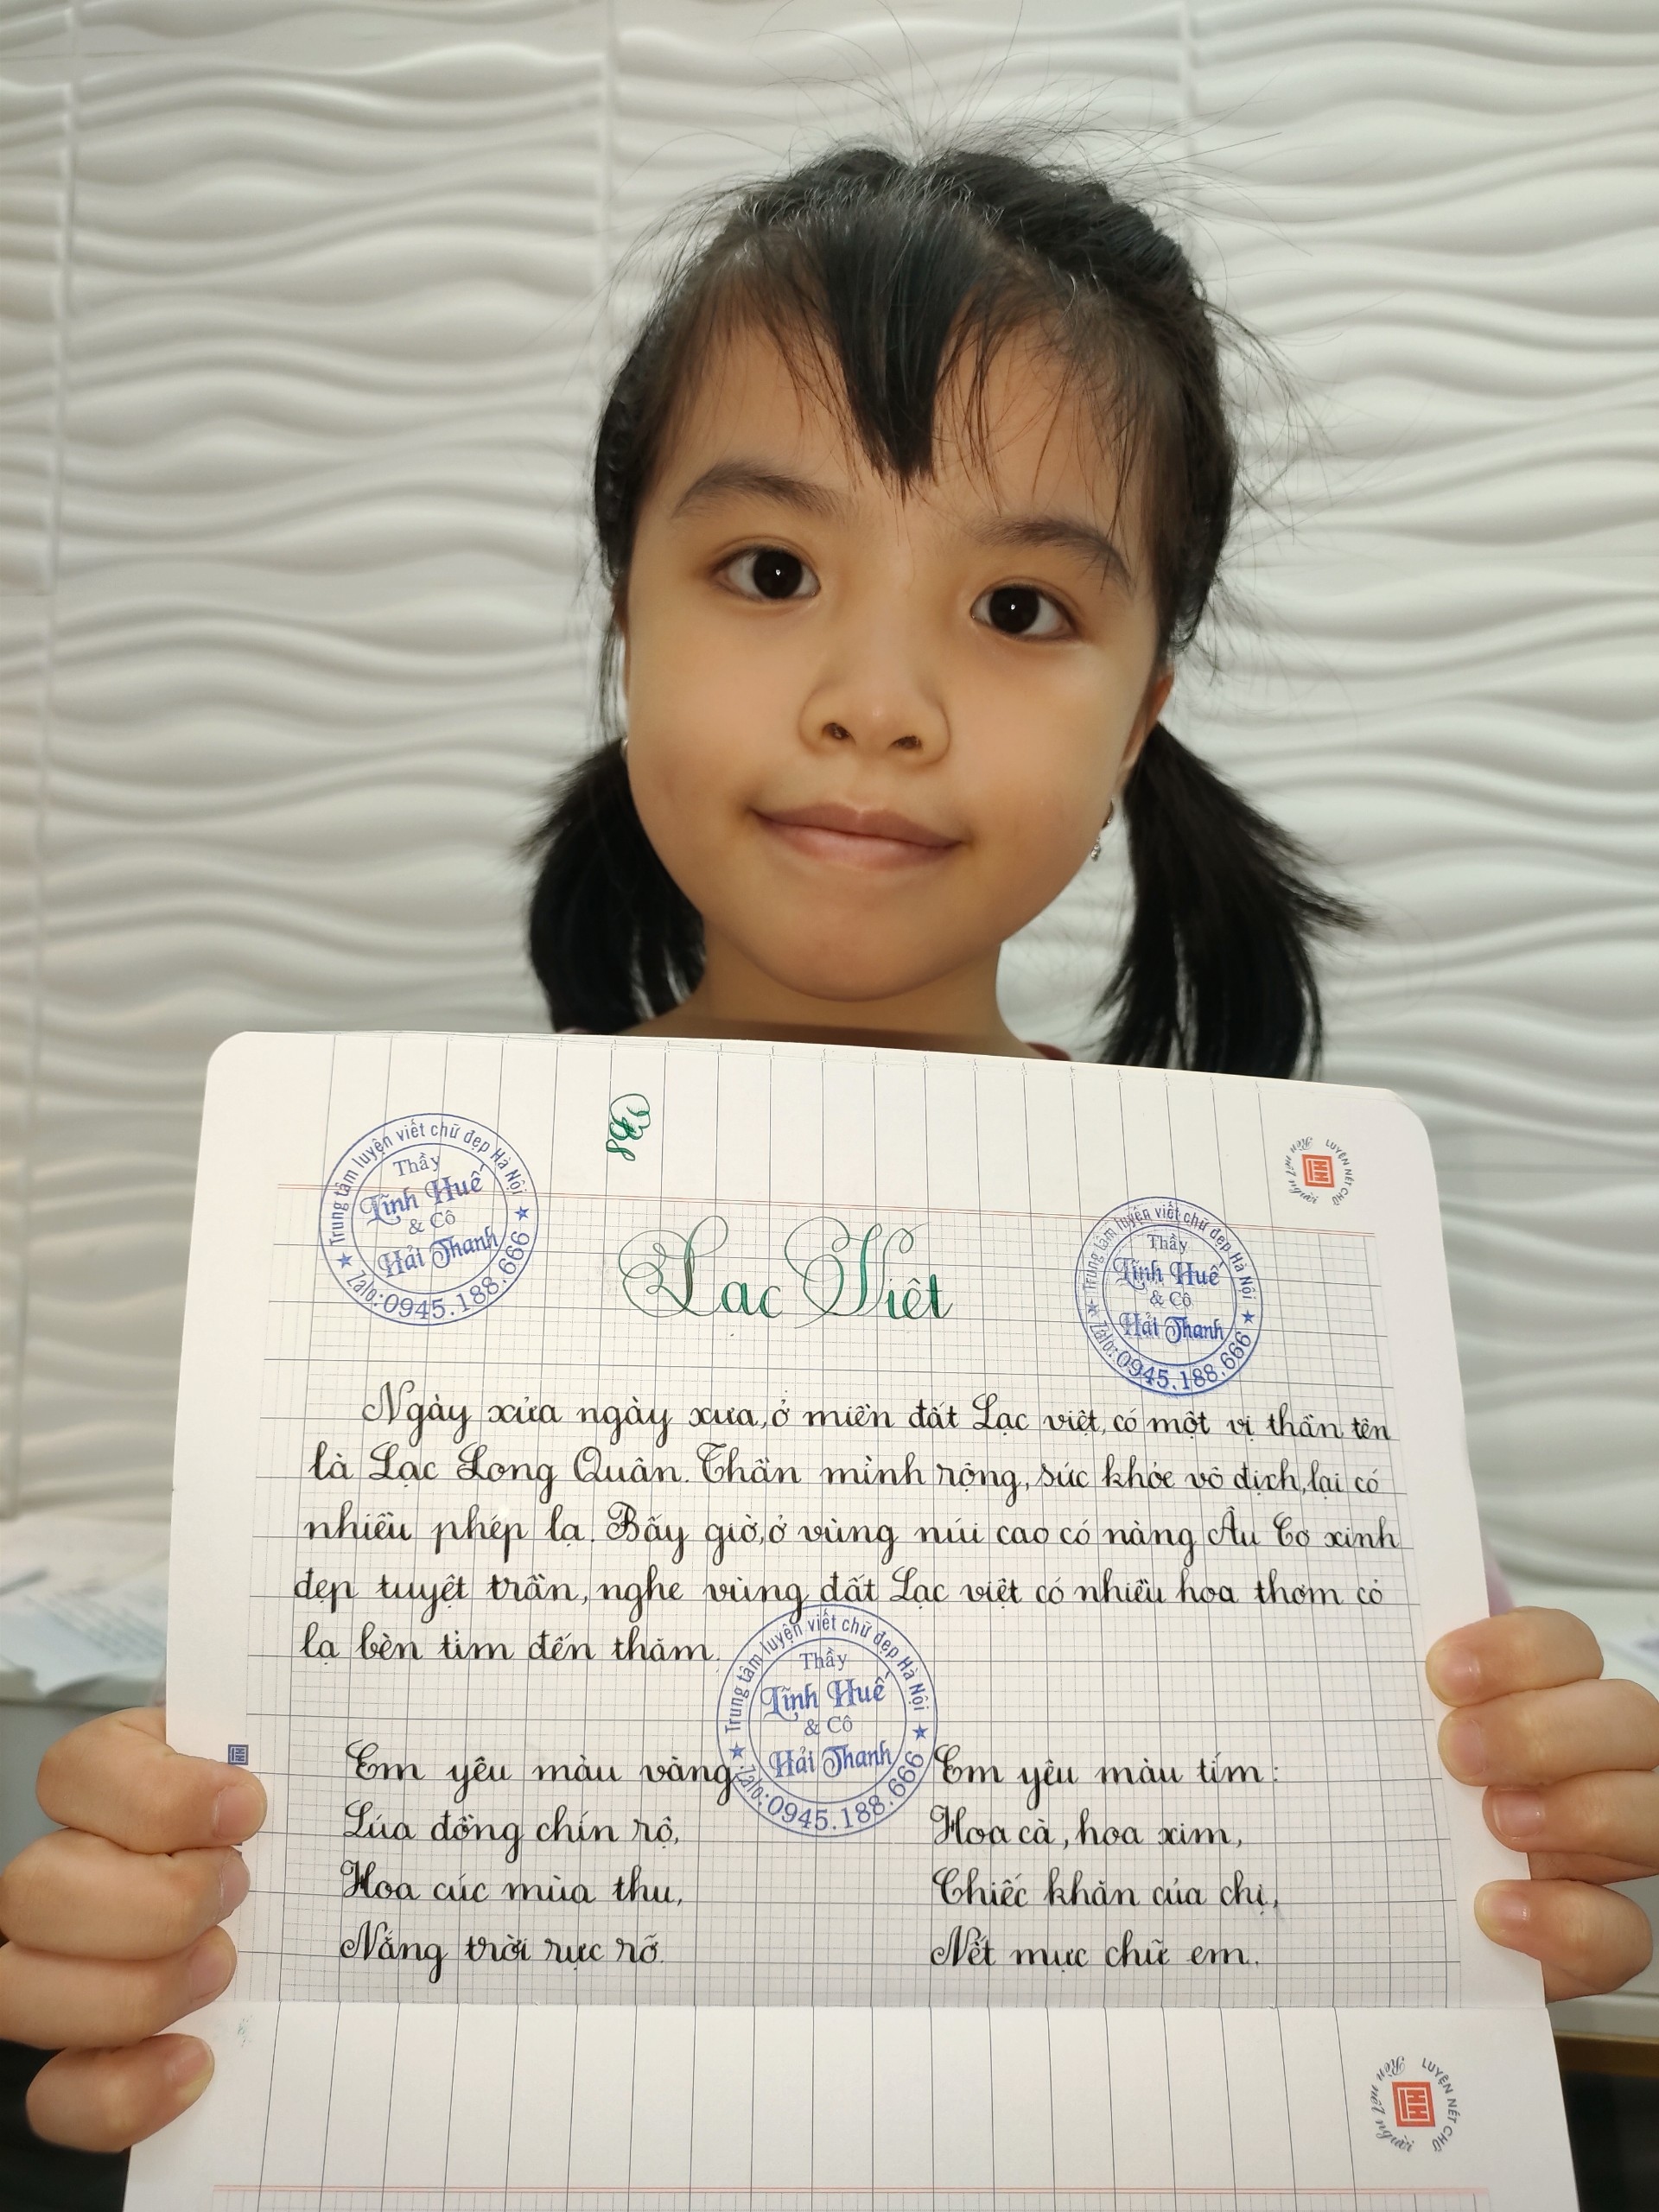 Trung tâm luyện viết chữ đẹp Hà Nội
Thầy
Lĩnh Huế
& Cô
Hải Thanh
Zalo: 0945.188.666
LUYỆN NÉT CHỮ
Rèn nết người
Trung tâm luyện viết chữ đẹp Hà Nội
Thầy
Lĩnh Huế
& Cô
Hải Thanh
Zalo: 0945.188.666
Lạc Việt
Ngày xửa ngày xưa, ở miền đất Lạc việt, có một vị thần tên
là Lạc Long Quân. Thần mình rộng, sức khỏe vô địch, lại có
nhiều phép lạ. Bấy giờ, ở vùng núi cao có nàng Âu Cơ xinh
đẹp tuyệt trần, nghe vùng đất Lạc việt có nhiều hoa thơm cỏ
lạ bèn tìm đến thăm.
Trung tâm luyện viết chữ đẹp Hà Nội
Thầy
Lĩnh Huế
& Cô
Hải Thanh
Zalo: 0945.188.666
Em yêu màu vàng
Lúa đồng chín rộ,
Hoa cúc mùa thu,
Nắng trời rực rỡ.
Em yêu màu tím:
Hoa cà, hoa xim,
Chiếc khăn của chị,
Nét mực chữ em.
LUYỆN NÉT CHỮ
Rèn nết người